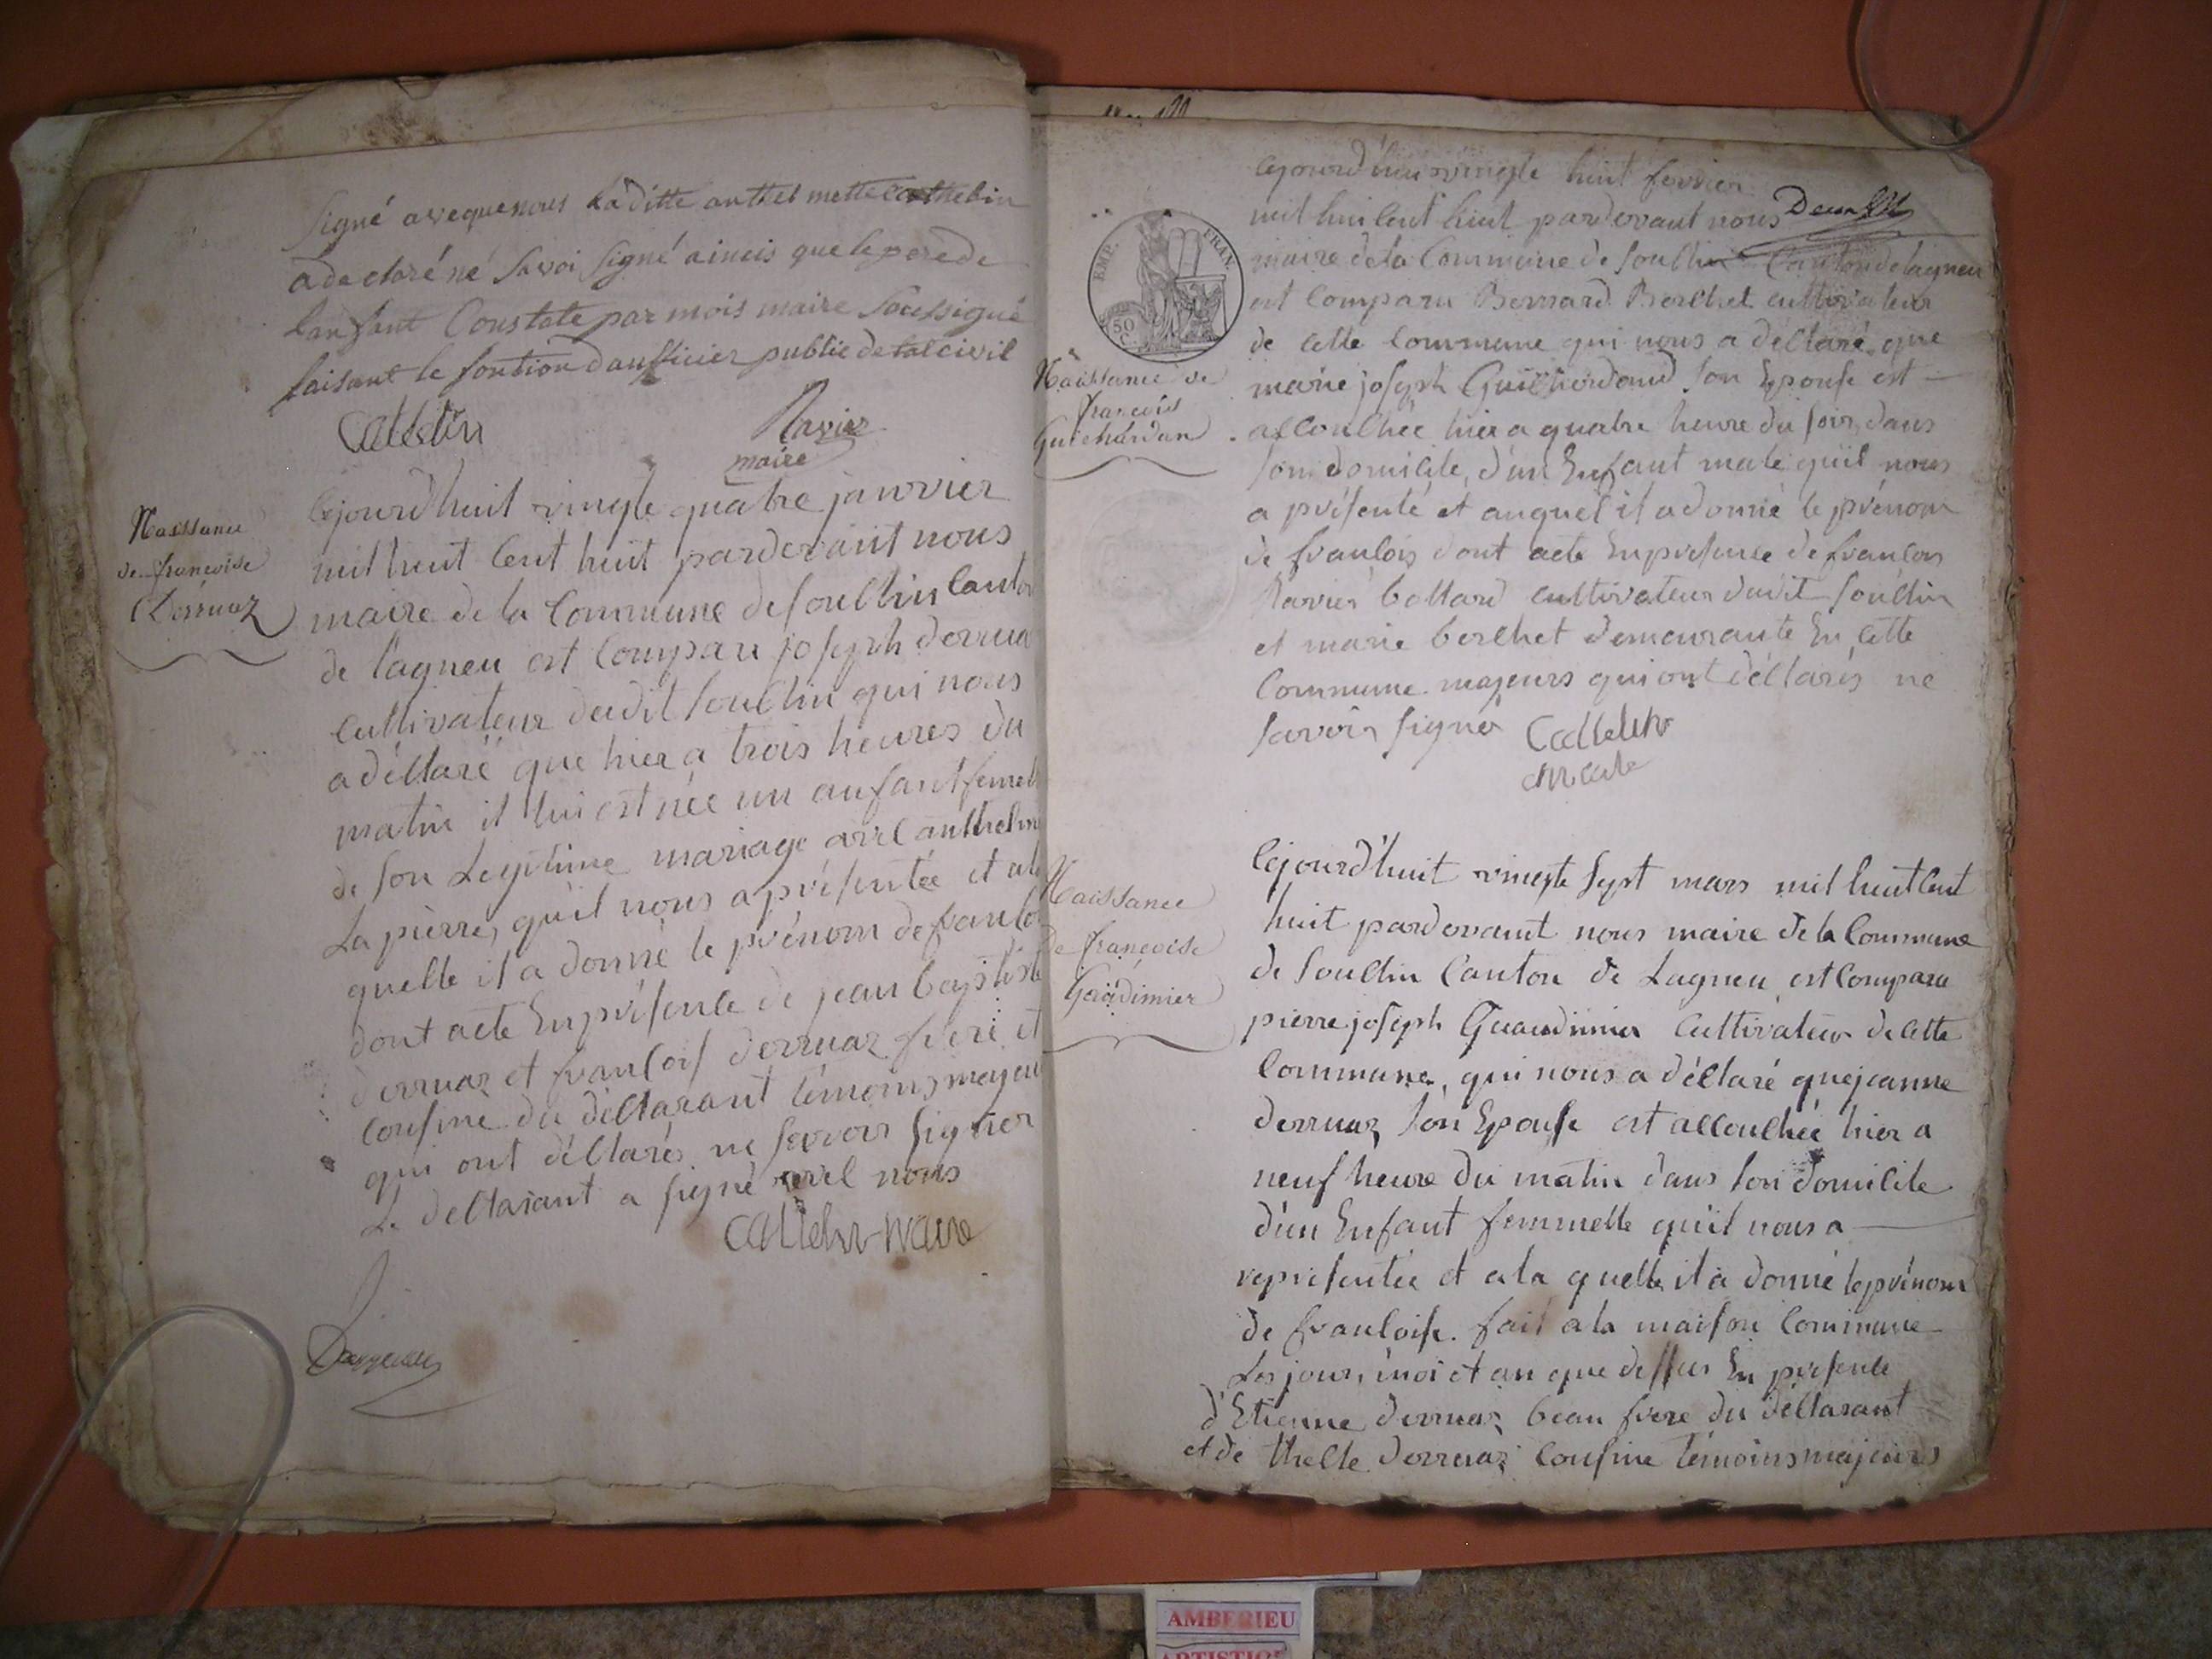 signé avequenous Laditte anthelmette
adeclaré né savoi signé aincis que le pere de
Lanfant Constate par mois maire Soussigné
faisant le fontion daufficier public detat civil
Ravier
maire
Naissance
de francoise
Derruaz
Cejourdhuit vingte quatre janvier
mil huit Cent huit pardevant nous
maire de la Commune de Souclin Canton
de Lagneu est Comparu joseph derrua
Cultivateur dudit Souclin qui nous
a déclaré que hier a trois heures du
matin il lui est née un anfant femel
de son Legitime mariage avec anthelm
La pierre, qu'il nous a présentée et ala
quelle il a donné le prénom de francoi
dont acte En présence de jean baptiste
derruaz et francois derruaz frere et
Cousine du déclarant témoins majeu
qui ont déclarés ne savoir signer
Le declarant a signé avec nous
maire
EMP. FRAN.
50
C.
Naissance de
francois
Guichardan
Cejourd'hui vingte huit fevrier
mil huit Cent huit pardevant nous
maire de la Commune de Souclin Canton de lagneu
est Comparu Bernard Berchet cultivateur
de cette Commune qui nous a déclaré que
marie joseph Guichardand son Epouse est
accouchée hier a quatre heure du soir, dans
son domicile, d'un Enfant male qu'il nous
a présenté et auquel il a donné le prénom
de francois dont acte En présence de francois
Ravier bollard cultivateur dudit Souclin
et marie berchet demeurante En cette
Commune majeurs qui ont déclarés ne
savoir signer
Naissance
De francoise
Cejourd'huit vingte sept mars mil huit Cent
huit pardevant nous maire de la Commune
de Souclin Canton de Lagneu est Comparu
pierre joseph Guaudimier Cultivateur de cette
Commune, qui nous a déclaré que jeanne
derruaz son Epouse est accouchée hier a
neuf heure du matin dans son domicile
d'un Enfant femmelle qu'il nous a
représentée et a la quelle il a donné le prénom
de francoise. fait a la maison Commune
Les jour, moi et an que dessus En présence
d'Etienne derruaz beau frere du déclarant
et de derruaz Cousine témoins majeurs
AMBERIEU